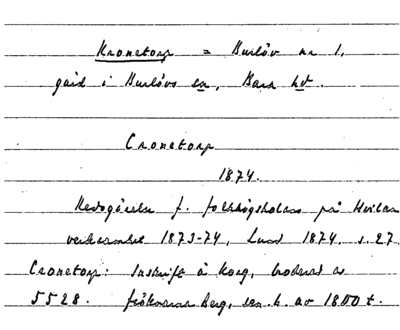 Kronetorp = Burlöv nr 1,
gård i Burlövs sn, Bara hd.
Cronetorp
1874.
Redogörelse f. folkhögskolans på Hvilan
verksamhet 1873-74, Lund 1874. s. 27.
Cronetorp: Inskrift å korg, broderad av
5528. fröknarna Berg, sen. h. av 1800 t.